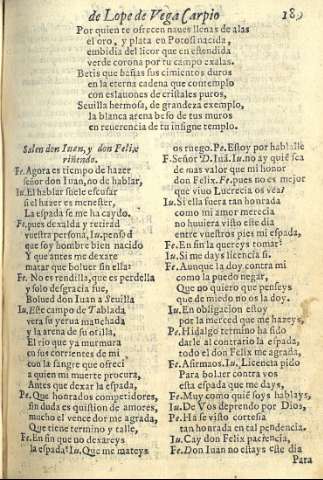 de Lope de Vega Carpio 189
Por quien te ofrecen naues llenas de alas
el oro, y plata en Potosi nacida,
embidia del licor que en estendida
verde corona por tu campo exalas.
Betis que bañas sus cimientos duros
en la eterna cadena que contemplo
con eslauones de cristales puros,
Seuilla hermosa, de grandeza exemplo,
la blanca arena beso de tus muros
en reuerencia de tu insigne templo.
Salen don Iuan, y don Felix
riñendo.
Fe. Agora es tiempo de hazer
señor don Iuan, no de hablar,
Iu. El hablar suele escusar
si el hazer es menester,
La espada se me ha caydo.
Fe. pues dexalda y retirá
vuestra persona, Iu. pensó
que soy hombre bien nacido
Y que antes me dexare
matar que boluer sin ella:
Fe. No es rendilla, que es perdella
y solo desgracia fue,
Bolued don Iuan a Seuilla
Iu. Este campo de Tablada
vera su yerua manchada
y la arena de su orilla,
El rio que ya murmura
en sus corrientes de mi
con la sangre que ofreci
a quien mi muerte procura,
Antes que dexar la espada,
Pe. Que honrados competidores,
sin duda es quistion de amores,
mucho el vencedor me agrada,
Que tiene termino y talle,
Fe. En fin que no dexareys
la espada? Iu. Que me mateys
os ruego. Pe. Estoy por hablalle
F. Señor D. Iuā. Iu. no ay quiē sea
de mas valor que mi honor
don Felix. Fe. pues no es mejor
que viuo Lucrecia os vea?
Iu. Si ella fuera tan honrada
como mi amor merecia
no huuiera visto este dia
entre vuestros pies mi espada,
Fe. En fin la quereys tomar?
Iu. Si me days licencia si.
Fe. Aunque la doy contra mi
como la puedo negar,
Que no quiero que penseys
que de miedo no os la doy.
Iu. En obligacion estoy
por la merced que me hazeys,
Pe. Hidalgo termino ha sido
darle al contrario la espada,
todo el don Felix me agrada,
Fe. Afirmaos. Iu. Licencia pido
Para boluer contra vos
esta espada que me days,
Fe. Muy como quié soys hablays,
Iu. De Vos deprendo por Dios,
Pe. Há se visto cortesia
tan honrada en tal pendencia.
Iu. Cay don Felix paciencia,
Fe. Don Iuan no estays este dia
Para